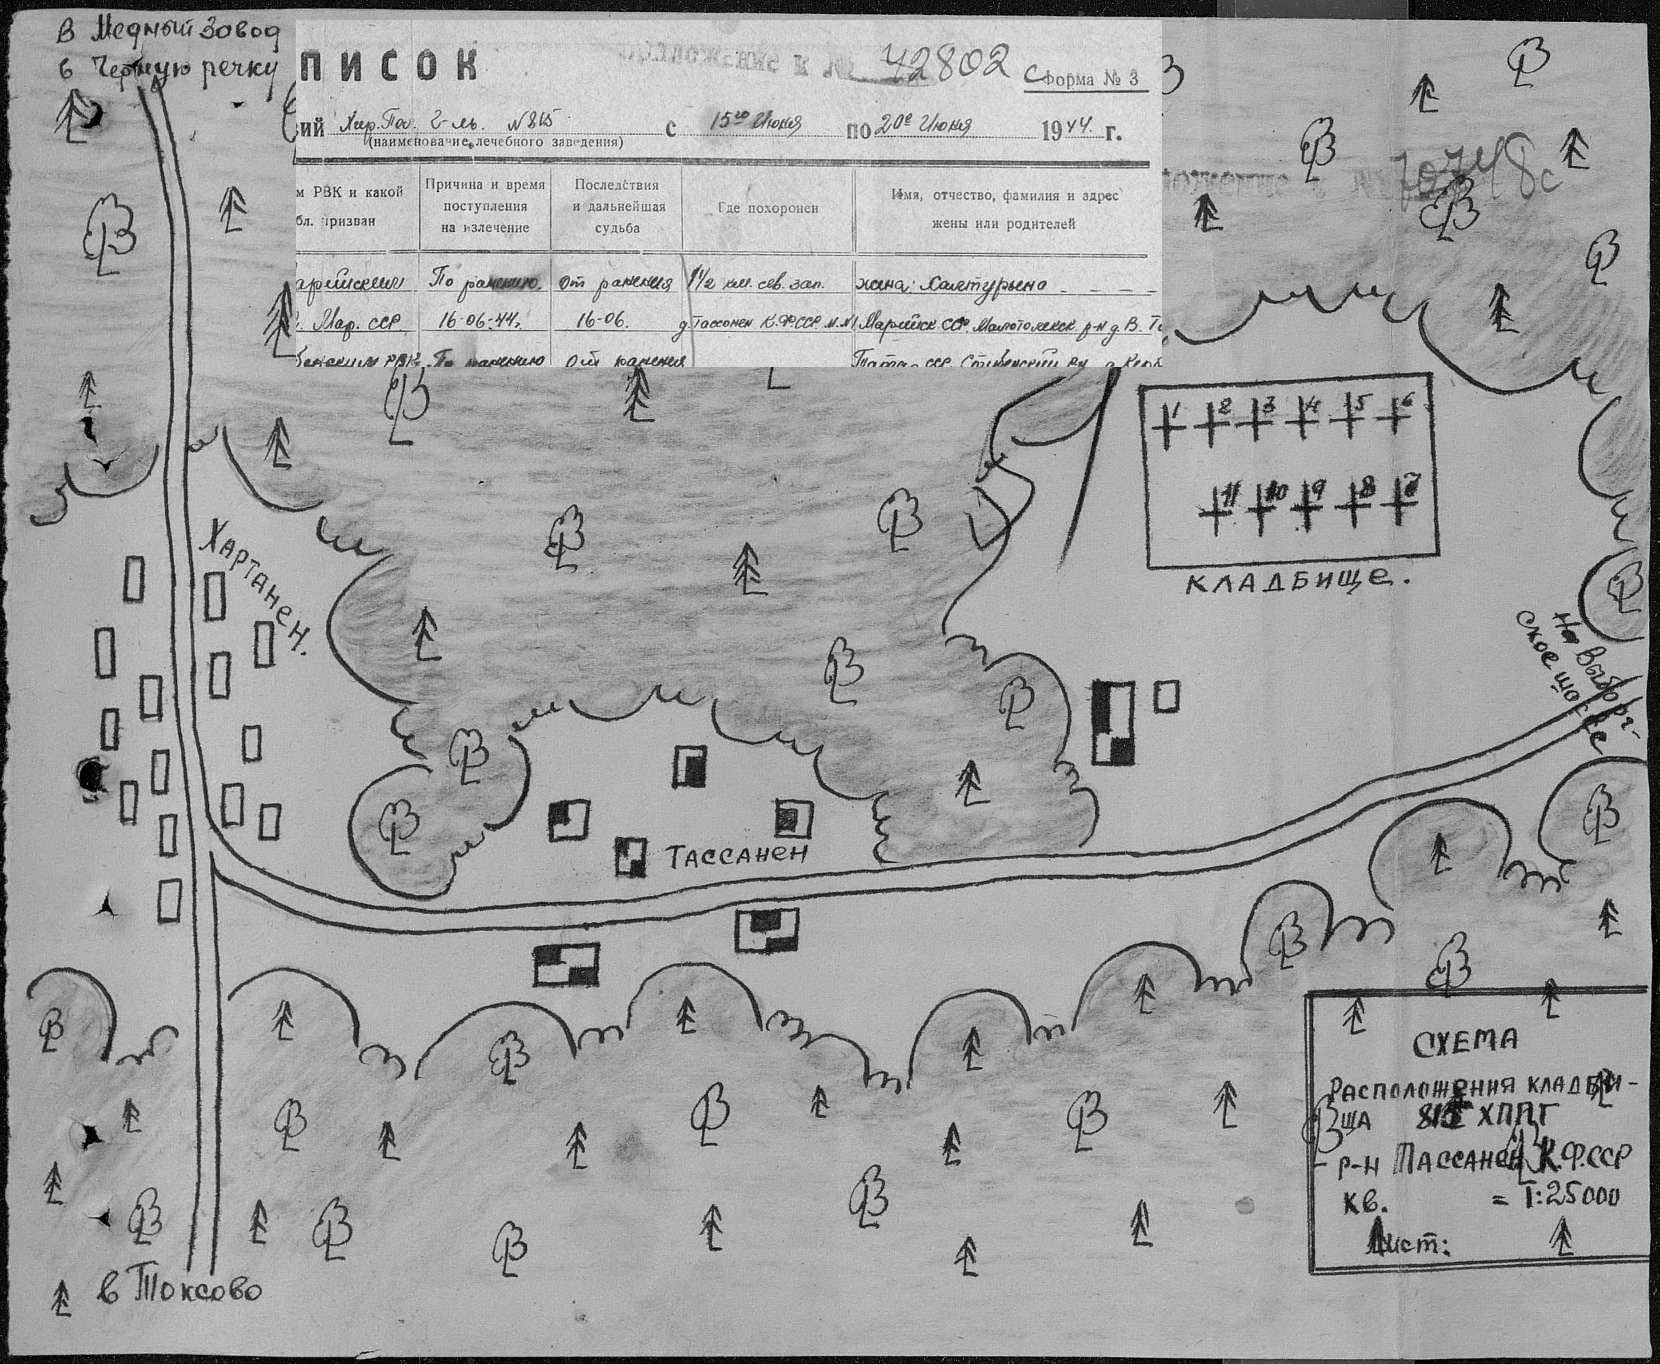 В Медный Завод
в Черную речку
ПИСОК
приложение к №
42802 с
Форма № 3
ий Хир. Пол. Г-ль. N 815 с 15го Июня по 20е Июня 1944 г.
(наименование лечебного заведения)
м РВК и какой
бл. призван
Причина и время
поступления
на излечение
Последствия
и дальнейшая
судьба
Где похоронен
Имя, отчество, фамилия и адрес
жены или родителей
арийским
По ранению.
От ранения
1 1/2 км. сев. зап.
жена: Халтурина
Мар. ССР
16-06-44.
16-06.
д Тассонен К.Ф.ССР м. №1
Марийск ССР р-н д. В.
РВК
По ранению
От ранения
ССР
70748с
1 2 3 4 5 6
11 10 9 8 7
КЛАДБИЩЕ.
Хартанен.
На Выборг-
ское шоссе
Тассанен
СХЕМА
Расположения кладби-
ща 815 ХППГ
р-н Тассанен К.Ф.ССР
кв. = 1:25000
Лист:
в Токсово